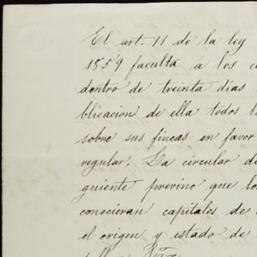 El art. 11 de la ley
1859 faculta a los c
dentro de treinta dias
blicacion de ella todos l
sobre sus fincas en favor
regular. La circular d
guiente previno que lo
conocieran capitales de
el origen y estado de